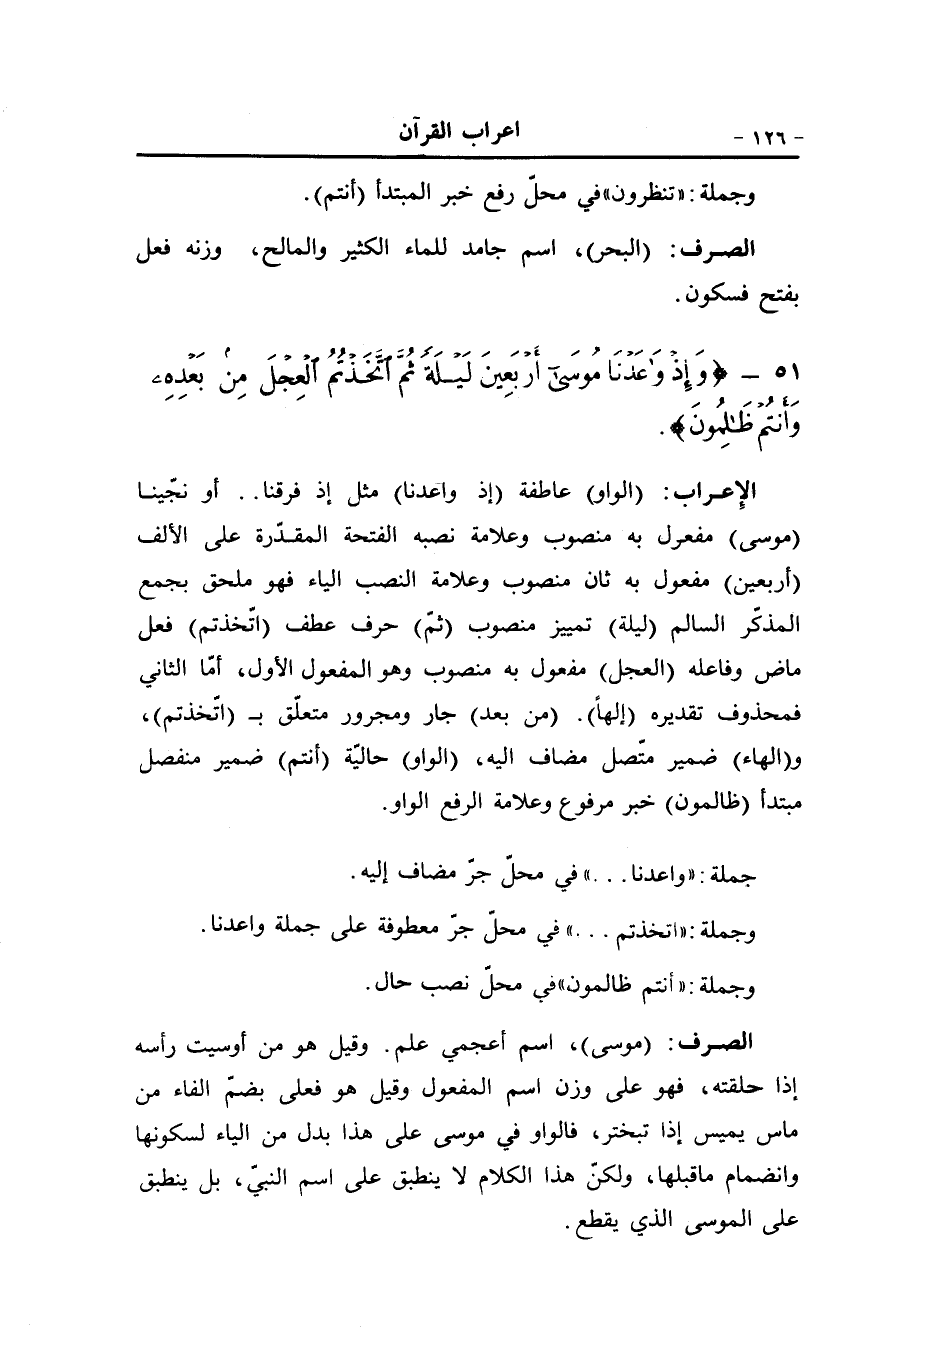 - ١٢٦ - اعراب القرآن
وجملة : «تنظرون» في محلّ رفع خبر المبتدأ (أنتم) .
الصـرف : (البحر)، اسم جامد للماء الكثير والمالح، وزنه فعل
بفتح فسكون .
٥١ - ﴿وَإِذْ وَٰعَدْنَا مُوسَىٰٓ أَرْبَعِينَ لَيْلَةً ثُمَّ ٱتَّخَذْتُمُ ٱلْعِجْلَ مِنۢ بَعْدِهِۦ
وَأَنتُمْ ظَٰلِمُونَ﴾ .
الإعـراب : (الواو) عاطفة (إذ واعدنا) مثل إذ فرقنا . . أو نجّينـا
(موسى) مفعول به منصوب وعلامة نصبه الفتحة المقـدّرة على الألف
(أربعين) مفعول به ثان منصوب وعلامة النصب الياء فهو ملحق بجمع
المذكّر السالم (ليلة) تمييز منصوب (ثمّ) حرف عطف (اتّخذتم) فعل
ماض وفاعله (العجل) مفعول به منصوب وهو المفعول الأول، أمّا الثاني
فمحذوف تقديره (إلهاً). (من بعد) جار ومجرور متعلّق بـ (اتّخذتم)،
و(الهاء) ضمير متّصل مضاف اليه، (الواو) حاليّة (أنتم) ضمير منفصل
مبتدأ (ظالمون) خبر مرفوع وعلامة الرفع الواو.
جملة : «واعدنا . . .» في محلّ جرّ مضاف إليه .
وجملة : «اتخذتم . . .» في محلّ جرّ معطوفة على جملة واعدنا .
وجملة : «أنتم ظالمون» في محلّ نصب حال .
الصـرف : (موسى)، اسم أعجمي علم . وقيل هو من أوسيت رأسه
إذا حلقته، فهو على وزن اسم المفعول وقيل هو فعلى بضمّ الفاء من
ماس يميس إذا تبختر، فالواو في موسى على هذا بدل من الياء لسكونها
وانضمام ماقبلها، ولكنّ هذا الكلام لا ينطبق على اسم النبيّ، بل ينطبق
على الموسى الذي يقطع .